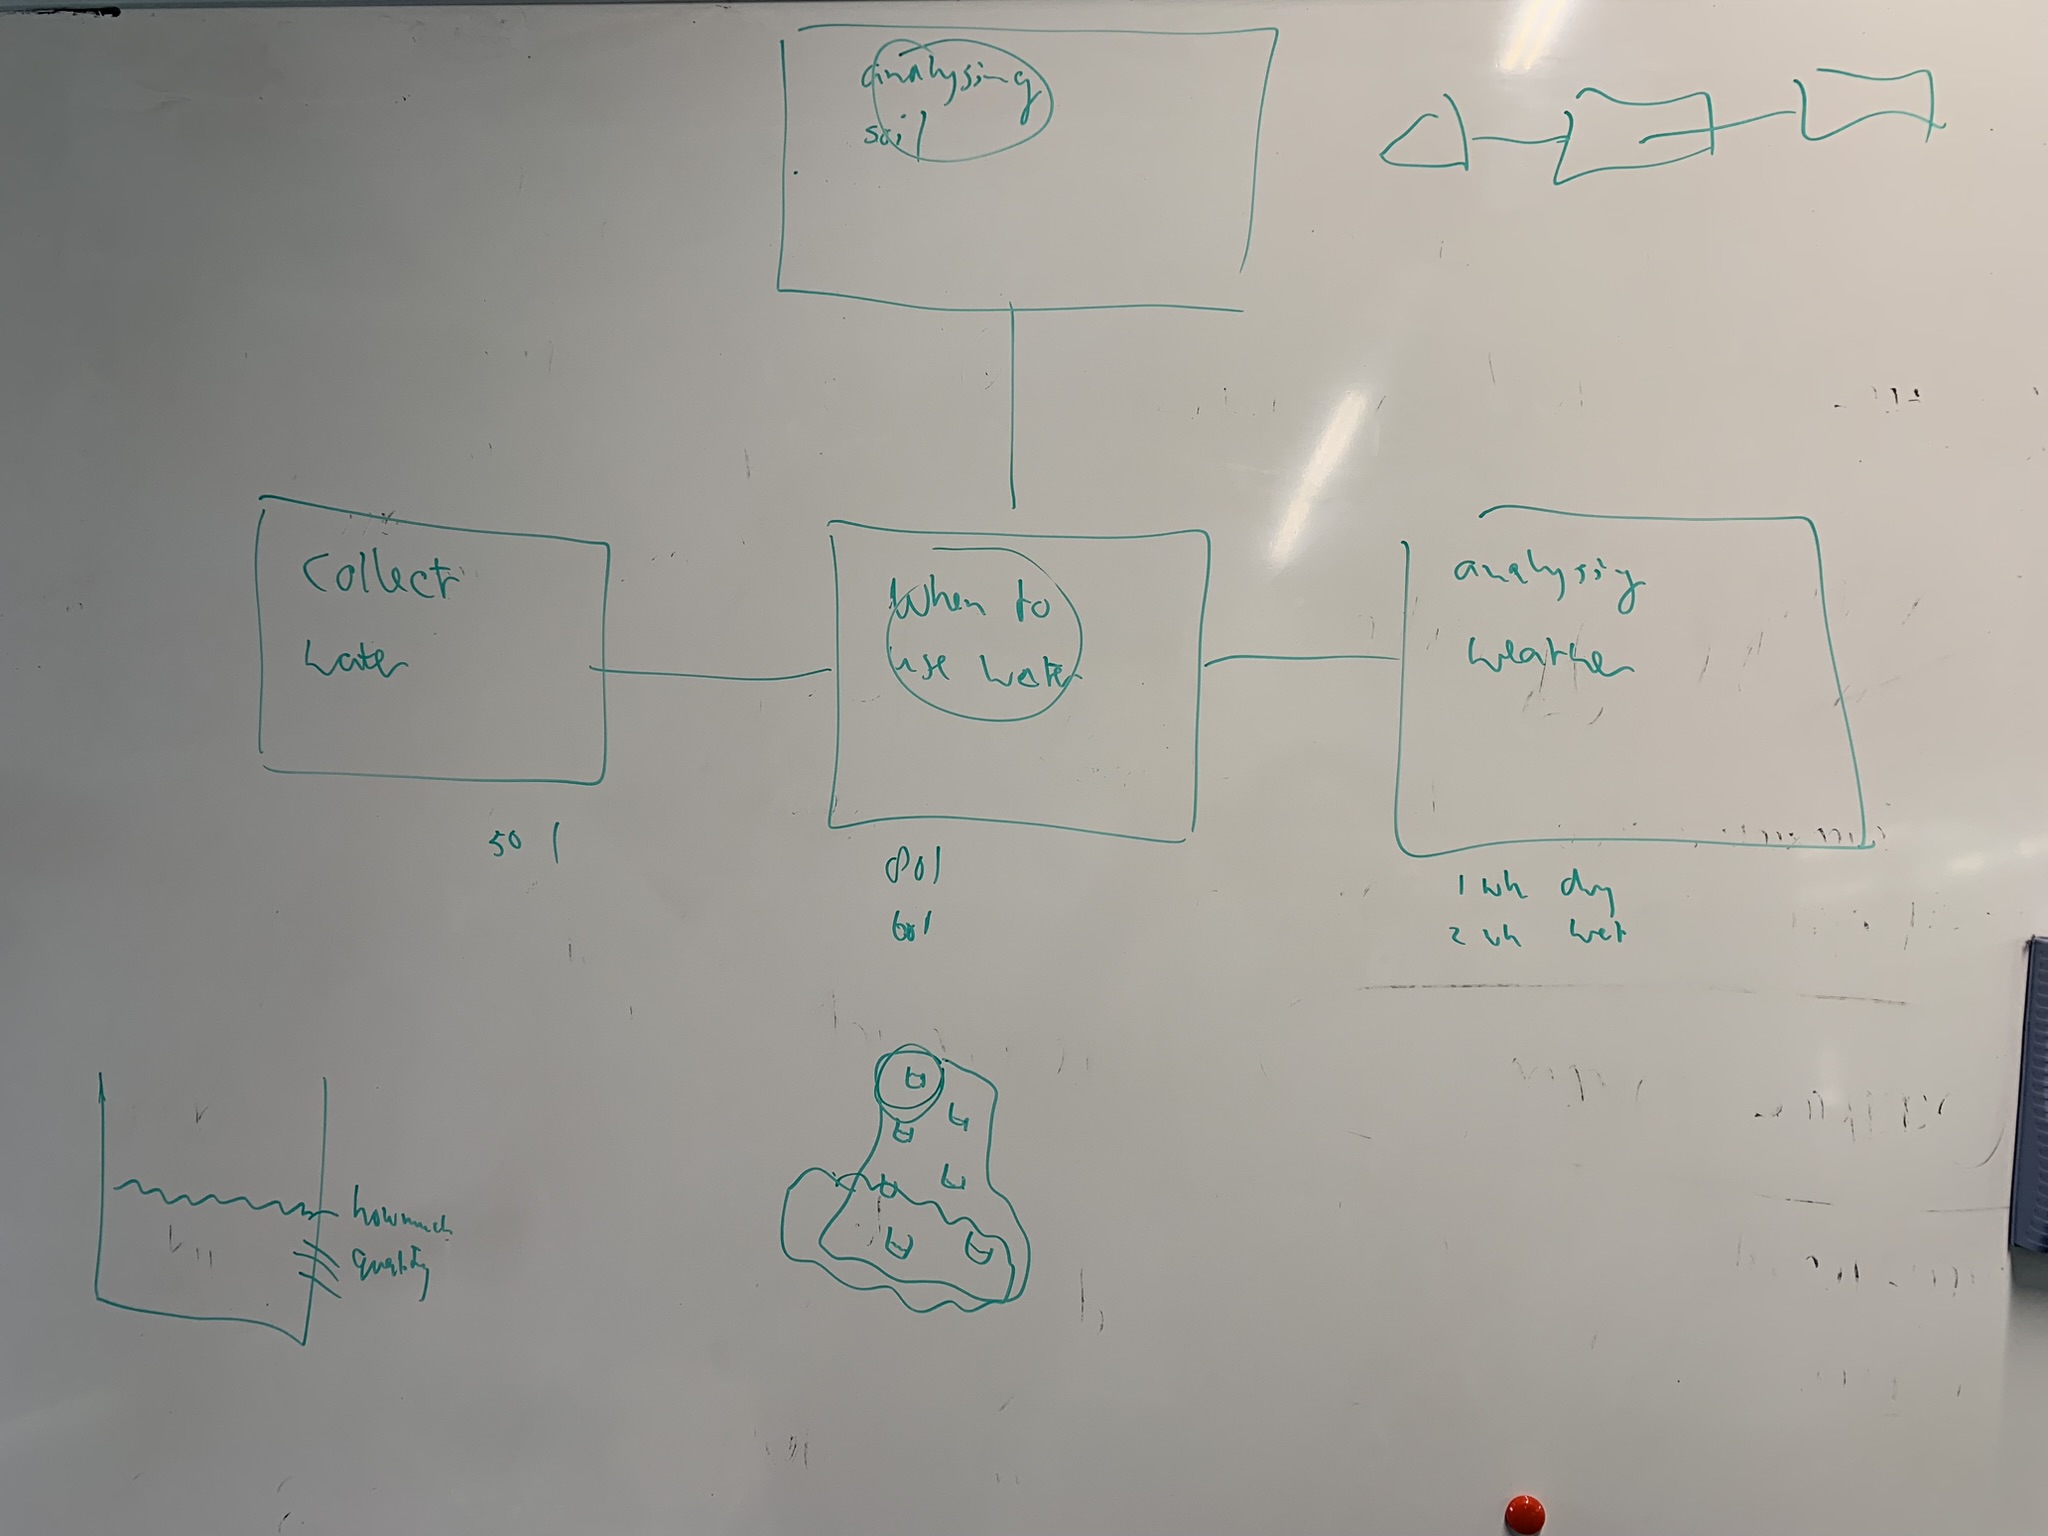 analysing
soil
Collect
water
When to
use water
analysing
weather
50 l
80 l
60 l
1 wk dry
2 wk wet
how much
quality